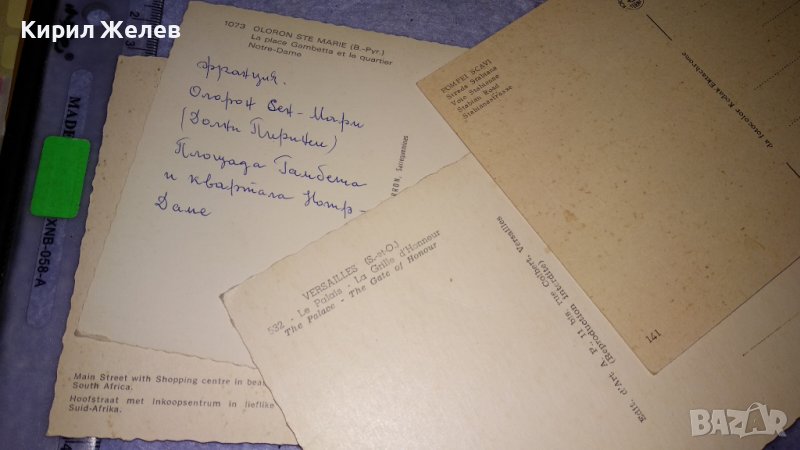 Кирил Желев
1073 OLORON STE MARIE (B.-Pyr.)
La place Gambetta et le quartier
Notre-Dame
франция.
Олорон Сен-Мари
(Долни Пиринеи)
Площада Гамбета
и квартала Нотр-
Даме
POMPEI SCAVI
Strada Stabiana
Voie Stabienne
Stabian Road
Stabianer-Strasse
da fotocolor Kodak Ektachrome
141
MADE
XNB-058-A
VERSAILLES (S.-et-O.)
532 - Le Palais - La Grille d'Honneur
The Palace - The Gate of Honour
Edit. d'Art A. P., 11 bis rue Colbert, Versailles
(Reproduction Interdite)
Main Street with Shopping centre in
South Africa.
Hoofstraat met inkoopsentrum in lieflike
Suid-Afrika.
BAZAR